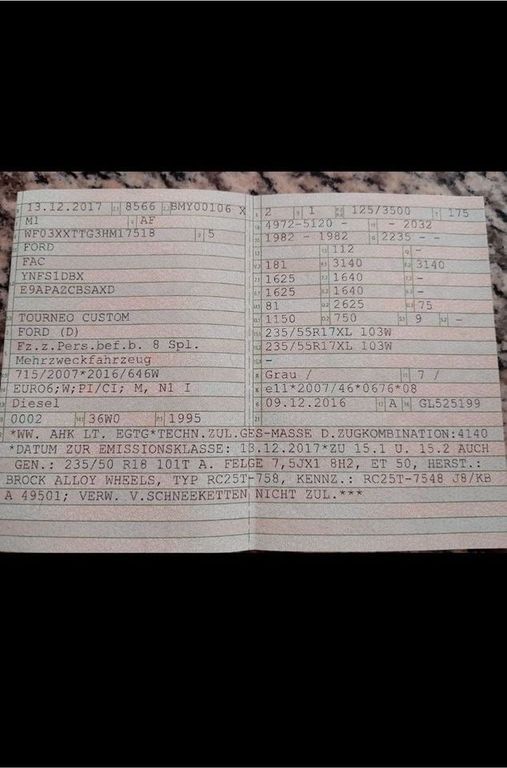 13.12.2017 8566 BMY00106 X
M1 AF
WF03XXTTG3HM17518 5
FORD
FAC
YNFS1DBX
E9APAZCBSAXD
TOURNEO CUSTOM
FORD (D)
Fz.z.Pers.bef.b. 8 Spl.
Mehrzweckfahrzeug
715/2007*2016/646W
EURO6;W;PI/CI; M, N1 I
Diesel
0002 36W0 1995
2 1 125/3500 175
4972-5120 - - 2032
1982 - 1982 2235 - -
112 -
181 3140 3140
1625 1640 -
1625 1640 -
81 2625 75
1150 750 9 -
235/55R17XL 103W
235/55R17XL 103W
-
Grau / 7 /
e11*2007/46*0676*08
09.12.2016 A GL525199
*WW. AHK LT. EGTG*TECHN.ZUL.GES-MASSE D.ZUGKOMBINATION:4140
*DATUM ZUR EMISSIONSKLASSE: 13.12.2017*ZU 15.1 U. 15.2 AUCH
GEN.: 235/50 R18 101T A. FELGE 7,5JX1 8H2, ET 50, HERST.:
BROCK ALLOY WHEELS, TYP RC25T-758, KENNZ.: RC25T-7548 J8/KB
A 49501; VERW. V.SCHNEEKETTEN NICHT ZUL.***